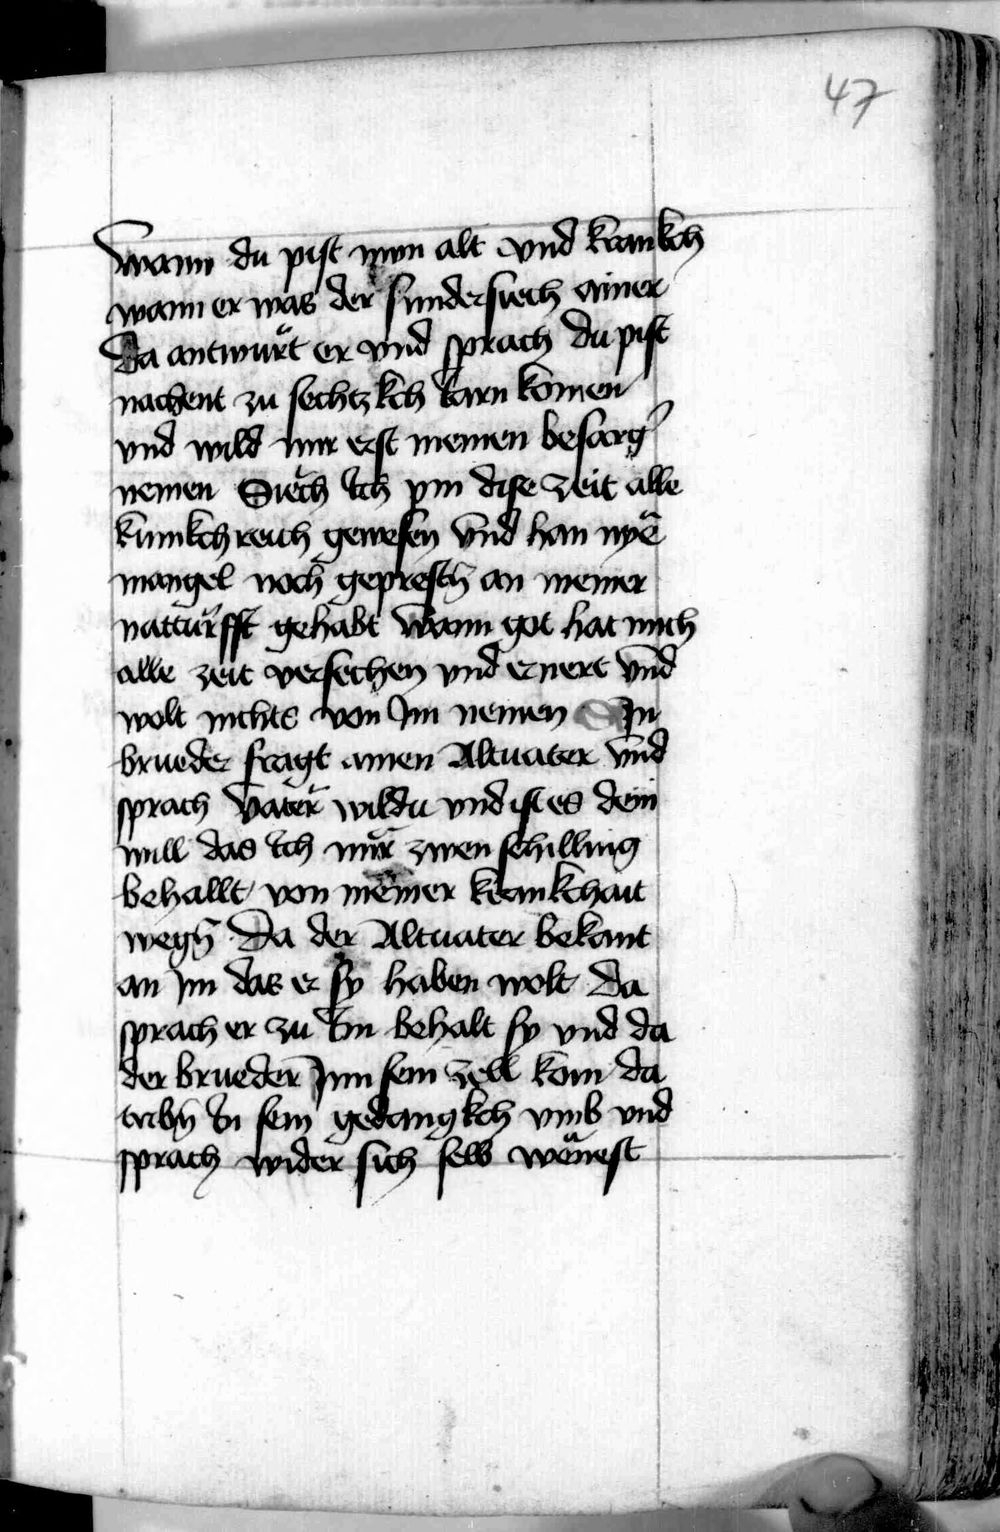 47
Wann du pist nun alt vnd krankch
wann er was der sundersiech ainer
Da antwurt er vnd sprach du pist
nachent zu sechtzkch Iarn komen
vnd wild mir erst meinen besorg̃
nemen Siech Ich pin dise zeit alle
kunkchreich gewesen vnd han nye
mangel noch geprestn̄ an meiner
natturfft gehabt Wann got hat mich
alle zeit versechen vnd ernert vnd
wolt nichts von Im nemen Ain
brueder fragt ainen Altuater vnd
sprach Vater wildu vnd ist es dein
will das Ich mir zwen schilling
behallt von meiner krankchait
wegn̄ Da der Altuater bekant
an Im das er sy haben wolt Da
sprach er zu Im behalt sy vnd da
der brueder Inn sein zell kom da
tribn̄ In sein gedangkch vmb vnd
sprach wider sich selb wänest